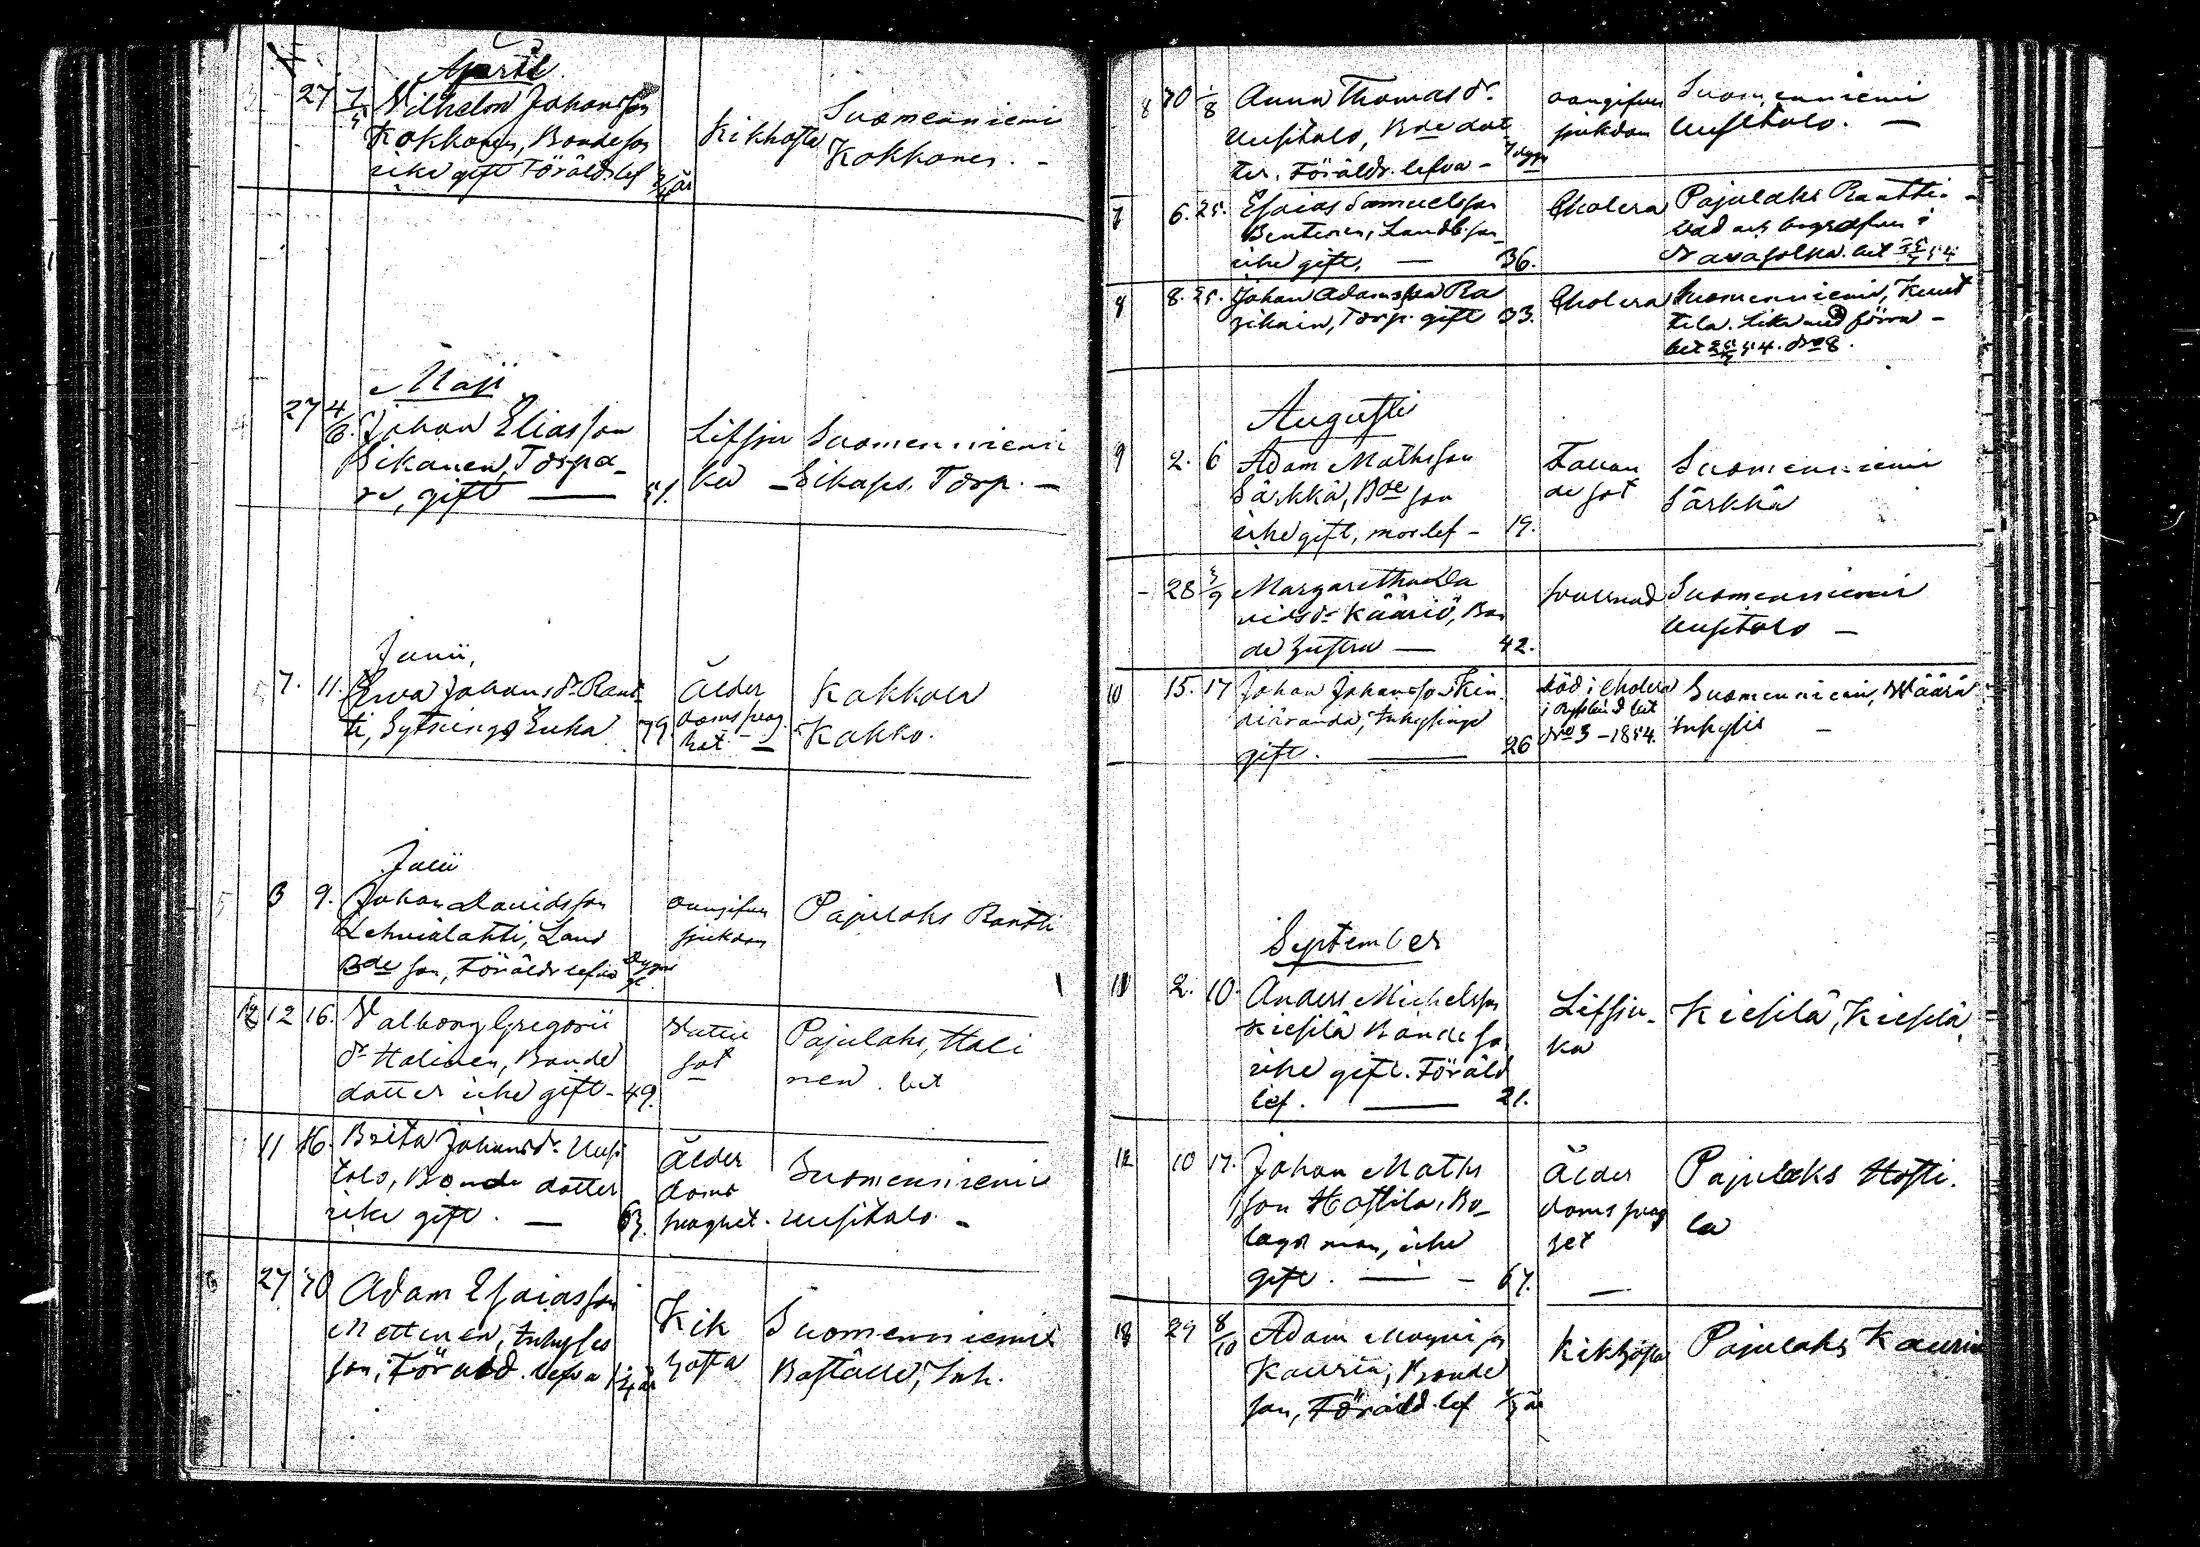 April
27 7/5 Wilhelm Johansson
Kokkonen, Bondeson
icke gift Föräldr. lef 3/4 år
Kikhosta
Suomenniemi
Kokkonen. -
Maji
27 4/6. Johan Eliasson
Sikanen, Torpa-
re, gift — 51.
Liffsju
ka -
Suomenniemi
Sikapes. Torp. -
Junii,
7. 11. Ewa Johansdr Rant
ti, Sytnings Enka 79.
Ålder
doms svag
het -
Kakkola
Kakko.
Julii
3 9. Johan Davidsson
Lehmälahti, Land
Bde son, Föräldr lefva
oangifven
sjukdom
Pajulaks Rantti
12 12 16. Walborg Gregorii
dr Halinen, Bonde
dotter icke gift - 49.
Wattu
sot
Pajulaks, Hali
nen. bet
11 16. Brita Johansdr Uusi
talo, Bonde dotter
icke gift. — 63.
Ålder
doms
svaghet.
Suomenniemi
Uusitalo. -
6 27 30 Adam Esaiasson
Mottinen, Inhyses
son, Föräld. lefva
Kik
hosta
Suomenniemi
Boställe, Inh.
8 30 1/8 Anna Thomasdr
Uusitalo, Bde dot
ter. Föräldr. lefva -
oangifven
sjukdom
Suomenniemi
Uusitalo. —
7 6. 25. Esaias Samuelsson
Pentinen, Landb. son
icke gift, — 36.
Cholera
Pajulaks Rantti. -
död och begrafven i
8 8. 25. Johan Adamsson Ra
sikain, Torp. gift 33.
Cholera
Suomenniemi, Kunt
tila. Lika med förra -
bet 25/7 54. No 8.
Augusti
9 2. 6 Adam Mathsson
Särkkä, Bde son
icke gift, mor lef - 19.
Suomenniemi
Särkkä
- 28 3/9 Margaretha Da
vidsdr Kääriö, Bon
de hustru — 42.
svullnad
Suomenniemi
Uusitalo —
10 15. 17 Johan Johansson Kin
inhysinge
gift. — 26
död i Cholera
i Ryssland bet
No 3 - 1854.
Suomenniemi, Määrä
inhyses -
September
11 2. 10. Anders Michelsson
Kiesilä Bonde son
icke gift. Föräld
lef. — 21.
Liffsju-
ka
Kiesilä, Kiesilä
12 10 17. Johan Maths
son Hostila, Bo-
lags man, icke
gift. — - 67.
Ålder
doms svag
het
—
Pajulaks Hosti.
la
13 29 8/10 Adam Magnisson
Kauria, Bonde
son, Föräld. lef
Kikhosta
Pajulaks Kauria